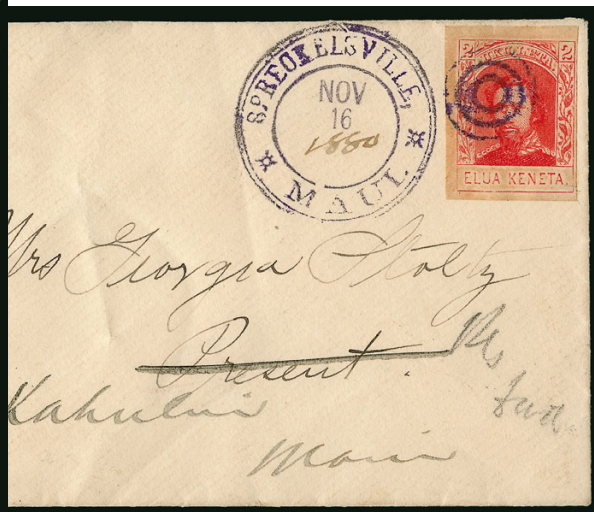 SPRECKELSVILLE,
NOV
16
1880
MAUI.
2 2
ELUA KENETA.
Mrs Georgia Stoltz
Present.
Pls
Fwd
Kahului
Maui